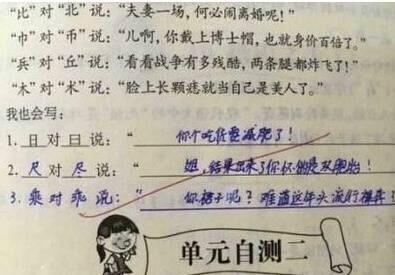 “比”对“北”说：“夫妻一场，何必闹离婚呢！”
“巾”对“币”说：“儿啊，你戴上博士帽，也就身价百倍了。”
“兵”对“丘”说：“看看战争有多残酷，两条腿都炸飞了！”
“木”对“术”说：“脸上长颗痣就当自己是美人了。”
我也会写：
1. 日对曰说：“你个吃货要减肥了！
2. 尺对尽说：“姐，结果出来了你怀的是双胞胎！
3. 乘对乖说：“你裤子呢？难道这年头流行裸奔？
单元自测二